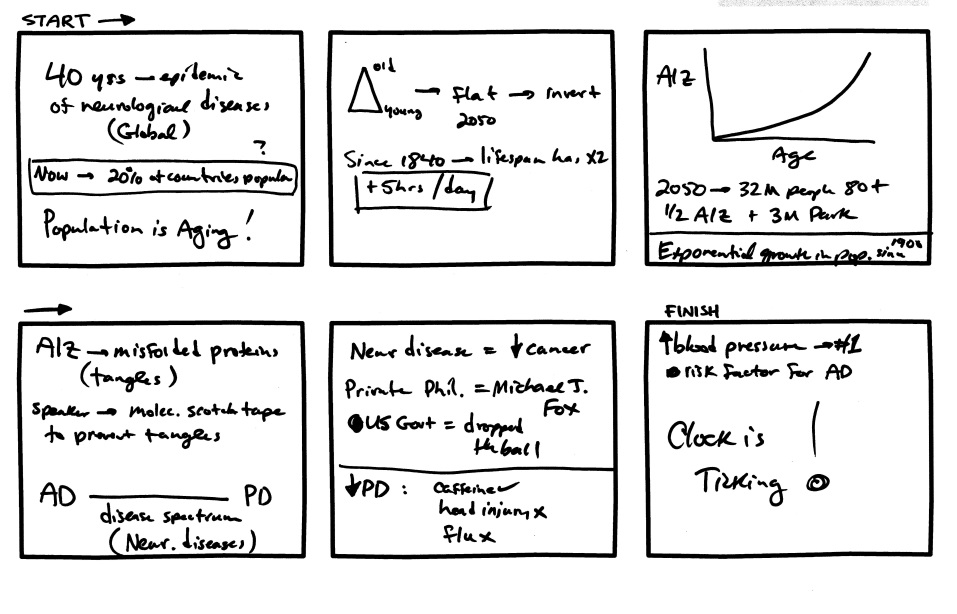 START →
40 yrs → epidemic
of neurological diseases
(Global)
?
Now → 20% of countries popula
Population is Aging!
old
young
→ flat → invert
2050
Since 1840 → lifespan has x2
+5hrs/day
Alz
Age
2050 → 32M people 80+
1/2 Alz + 3M Park
Exponential growth in pop. since 1900
→
Alz → misfolded proteins
(tangles)
speaker → molec. scotch tape
to prevent tangles
AD — PD
disease spectrum
(Neur. diseases)
Neur disease = ↓ cancer
Private Phil. = Michael J.
Fox
US Govt = dropped
the ball
↓PD : caffeine ✓
head injury x
flu x
FINISH
↑blood pressure → #1
risk factor for AD
Clock is
Ticking !